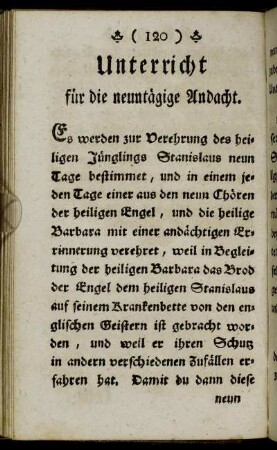 ( 120 )
Unterricht
für die neuntägige Andacht.
Es werden zur Verehrung des hei-
ligen Jünglings Stanislaus neun
Tage bestimmet, und in einem je-
den Tage einer aus den neun Chören
der heiligen Engel, und die heilige
Barbara mit einer andächtigen Er-
rinnerung verehret, weil in Beglei-
tung der heiligen Barbara das Brod
der Engel dem heiligen Stanislaus
auf seinem Krankenbette von den en-
glischen Geistern ist gebracht wor-
den, und weil er ihren Schutz
in andern verschiedenen Zufällen er-
fahren hat. Damit du dann diese
neun